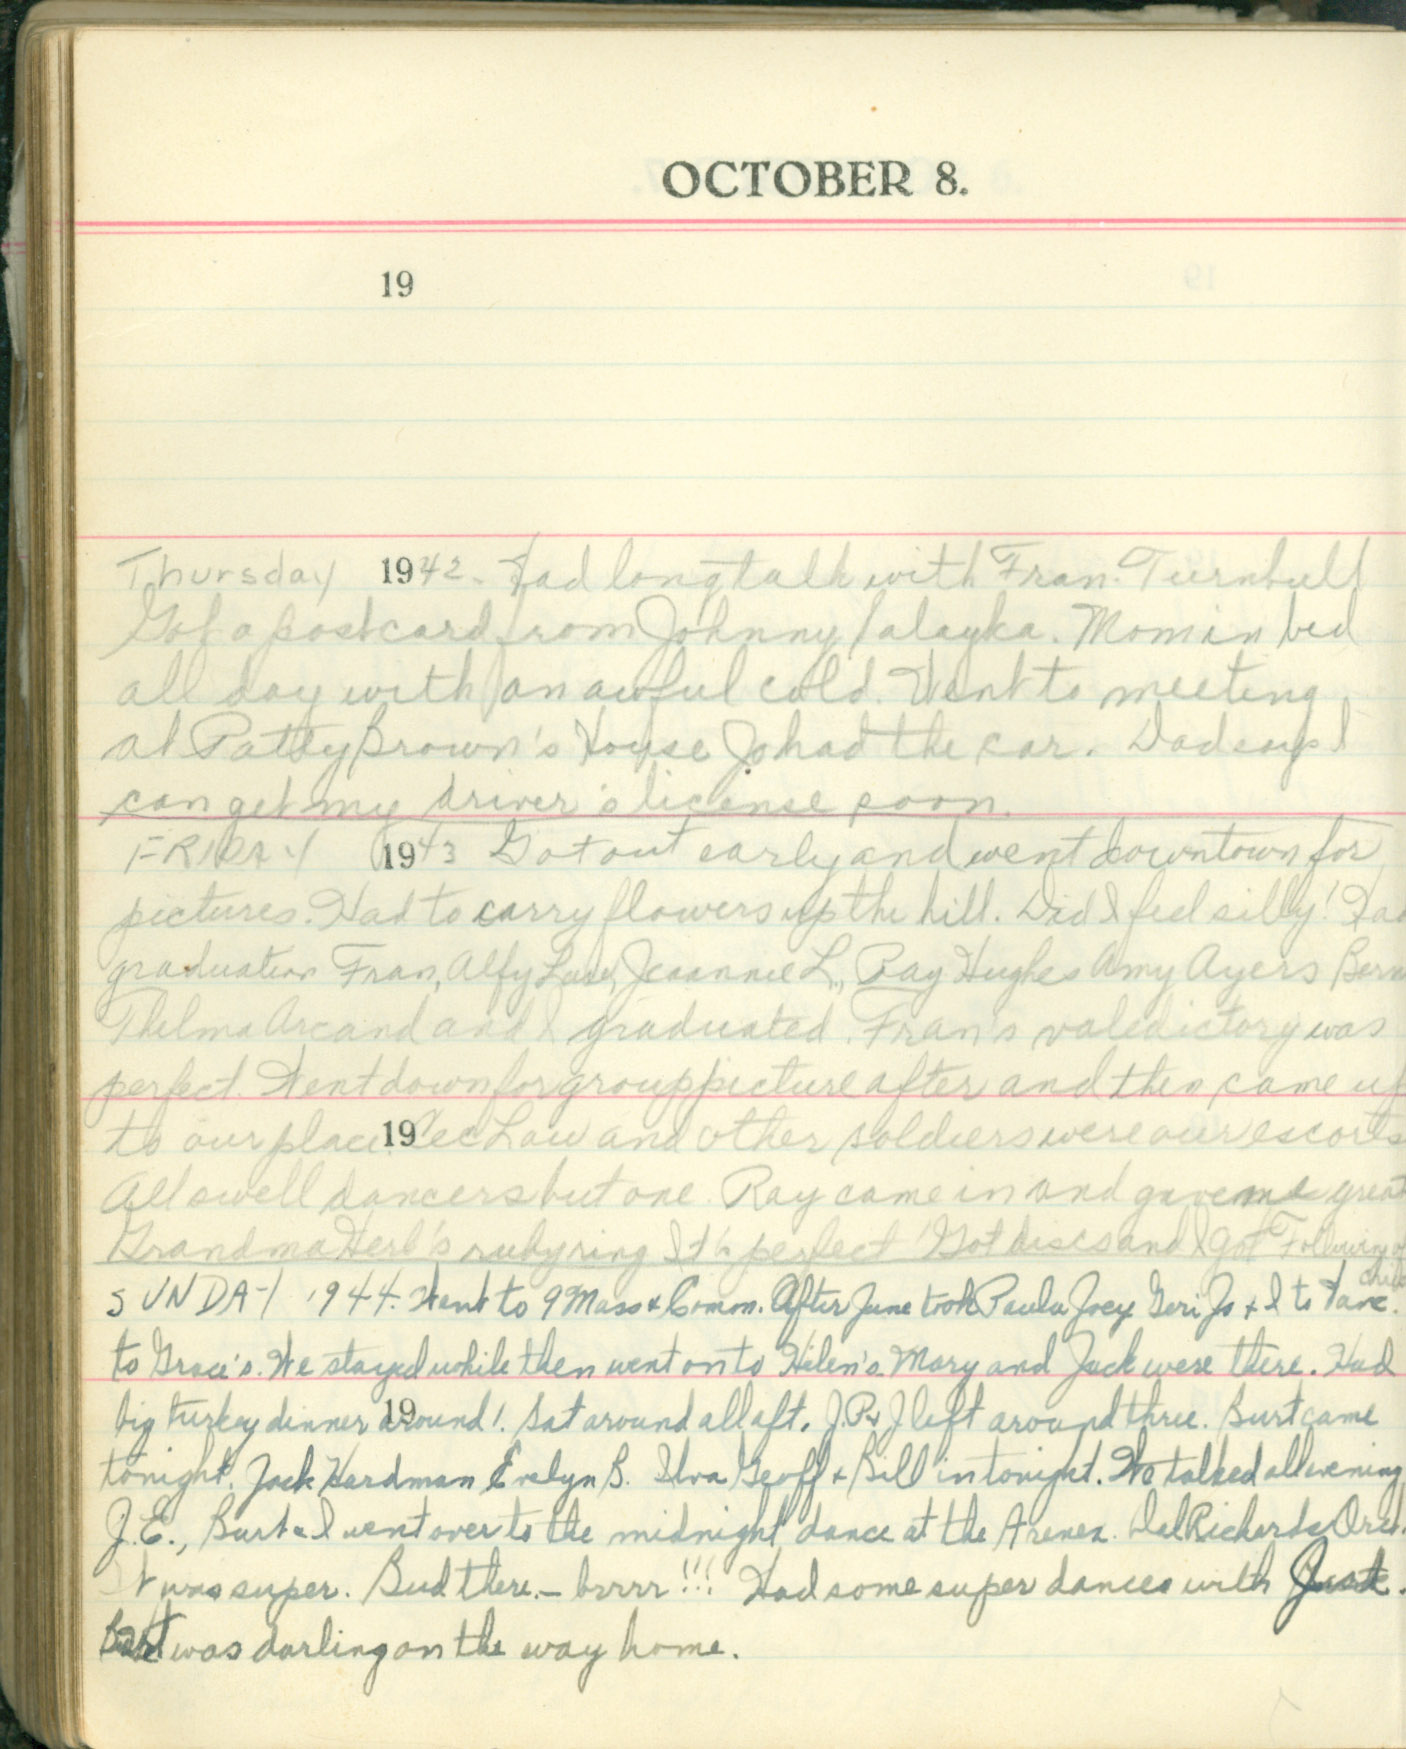 OCTOBER 8.
19
Thursday 1942. Had long talk with Fran. Turnbull
Got a postcard from Johnny Palayka. Mom in bed
all day with an awful cold. Went to meeting
at Patty Brown's House Jo had the car. Dad says I
can get my driver's license soon.
FRIDAY 1943 Got out early and went downtown for
pictures. Had to carry flowers up the hill. Did I feel silly! Had
graduation Fran, Alfy Jeannie L., Ray Hughes Amy Ayers Bern
Thelma Arcand and I graduated. Fran's valedictory was
perfect. Went down for group picture after and then came up
to our place. 19 Law and other soldiers were our escorts
All swell dancers but one. Ray came in and gave me great
Grandma Herb's ruby ring It's perfect! Got discs and I got Following
SUNDAY 1944. Went to 9 Mass & Comm. After June took Paula Joey Geri Jo & I to Vanc.
to Grace's. We stayed while then went on to Helen's. Mary and Jack were there. Had
big turkey dinner around! 19 Sat around all aft. J.P. & J left around three. Burt came
tonight. Jack Hardman Evelyn B. Elva Geoff & Bill in tonight. We talked all evening
J.E., Burt & I went over to the midnight dance at the Arenex. Dal Richards Orch.
It was super. Bud there. – brrrr!!! Had some super dances with
Burt was darling on the way home.